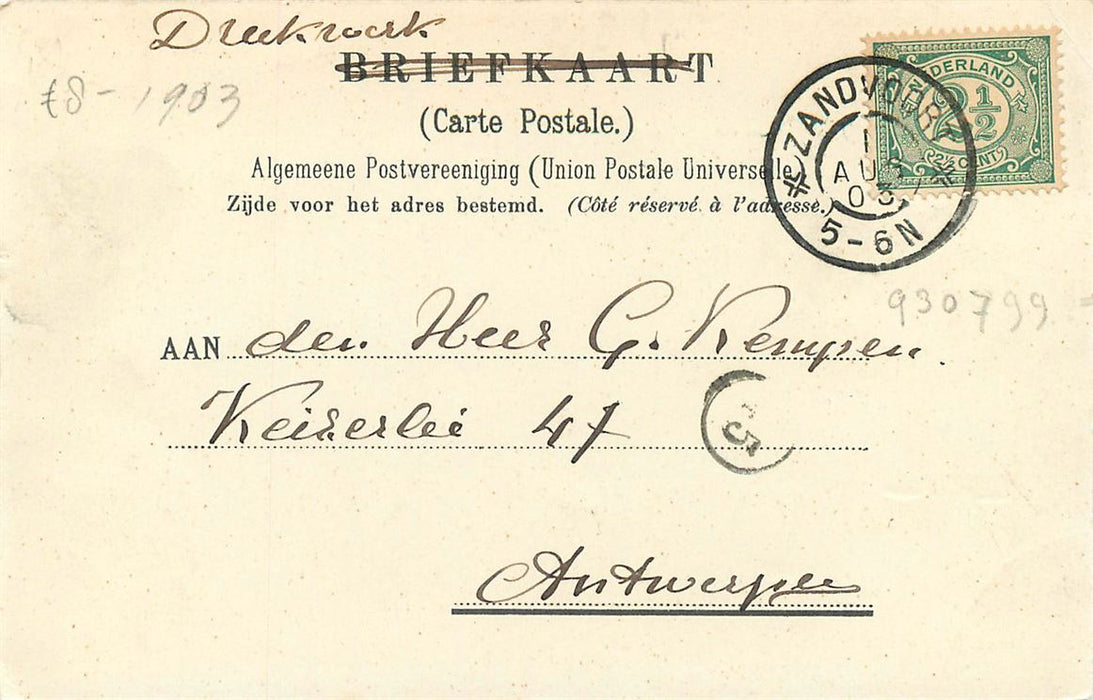 Drukwerk
BRIEFKAART
£8- 1903
(Carte Postale.)
Algemeene Postvereeniging (Union Postale Universelle)
Zijde voor het adres bestemd. (Côté réservé à l'adresse.)
NEDERLAND
2½
2½ CENT
ZANDVOORT
1
AUG
03
5-6N
930799
AAN den Heer G. Kempen
Keizerlei 47
5
Antwerpen